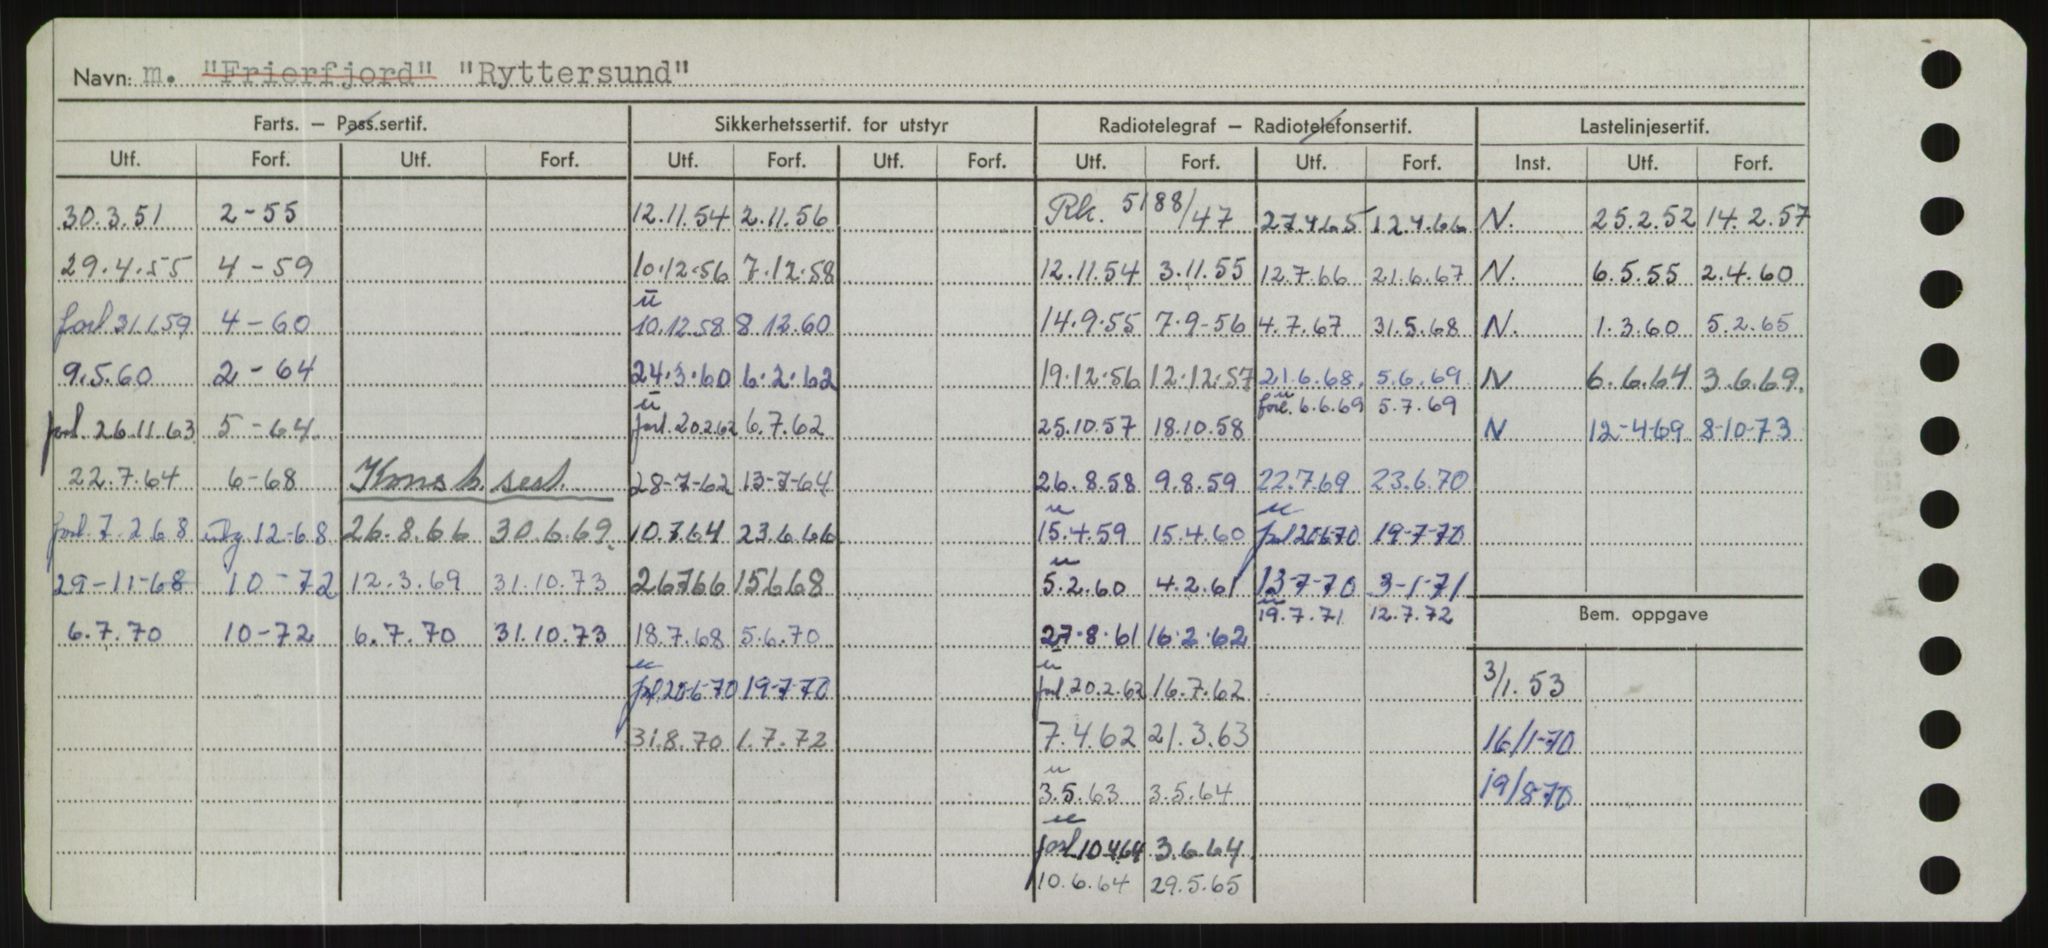 Navn: m. "Frierfjord" "Ryttersund"
Farts. — Pass.sertif. Sikkerhetssertif. for utstyr Radiotelegraf — Radiotelefonsertif. Lastelinjesertif.
Utf. Forf. Utf. Forf. Utf. Forf. Utf. Forf. Utf. Forf. Utf. Forf. Inst. Utf. Forf.
30.3.51 2-55 12.11.54 2.11.56 Rk. 5188/47 27.4.65 12.4.66 N. 25.2.52 14.2.57
29.4.55 4-59 10.12.56 7.12.58 12.11.54 3.11.55 12.7.66 21.6.67 N. 6.5.55 2.4.60
u
forl 31.1.59 4-60 10.12.58 8.12.60 14.9.55 7.9-56 4.7.67 31.5.68 N. 1.3.60 5.2.65
9.5.60 2-64 24.3.60 6.2.62 19.12.56 12.12.57 21.6.68. 5.6.69 N 6.6.64 3.6.69.
u u
forl. 6.6.69 5.7.69
forl. 26.11.63 5-64 forl. 20.2.62 6.7.62 25.10.57 18.10.58 N 12-4-69 8-10-73
22.7.64 6-68 sert. 28-7-62 13-7-64 26.8.58 9.8.59 22.7.69 23.6.70
u u
forl. 7.2.68 12-68 26.8.66 30.6.69. 10.7.64 23.6.66 15.4.59 15.4.60 forl 20-6-70 19-7-70
u
29-11-68 10-72 12.3.69 31.10.73 26766 15668 5.2.60 4.2.61 13-7-70 3-1-71
u
19.7.71 12.7.72
Bem. oppgave
6.7.70 10-72 6.7.70 31.10.73 18.7.68 5.6.70 27.8.61 16.2.62
u u
forl 20-6-70 19-7-70 forl. 20.2.62 16.7.62 3/1.53
31.8.70 1.7.72 7.4.62 21.3.63 16/1-70
u
3.5.63 3.5.64 19/8-70
u
forl 10.4.64 3.6.64
10.6.64 29.5.65